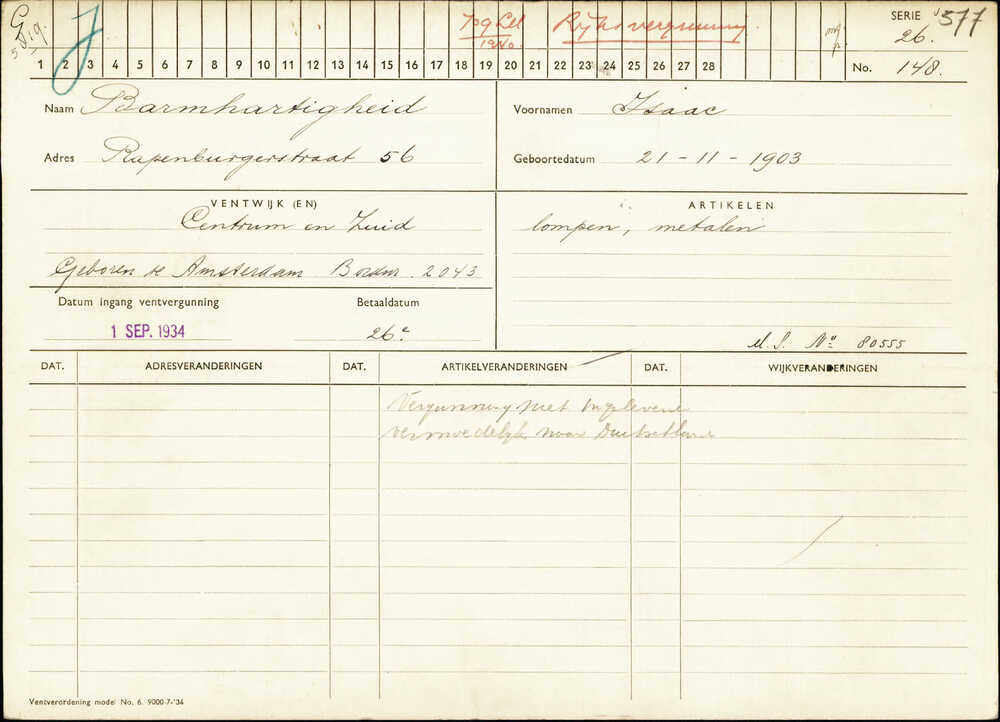 G
J
Rijksvergunning.
1940
SERIE 577
26.
1 2 3 4 5 6 7 8 9 10 11 12 13 14 15 16 17 18 19 20 21 22 23 24 25 26 27 28
No. 148.
Naam Barmhartigheid
Voornamen Isaac
Adres Rapenburgerstraat 56
Geboortedatum 21-11-1903
VENTWIJK (EN)
Centrum en Zuid
Geboren te Amsterdam Bordnr. 2043
ARTIKELEN
lompen, metalen
Datum ingang ventvergunning
1 SEP. 1934
Betaaldatum
26e
M.S. No 80555
DAT. ADRESVERANDERINGEN DAT. ARTIKELVERANDERINGEN DAT. WIJKVERANDERINGEN
Vergunning niet
vermoedelijk naar Duitschland
Ventverordening model No. 6. 9000-7-'34